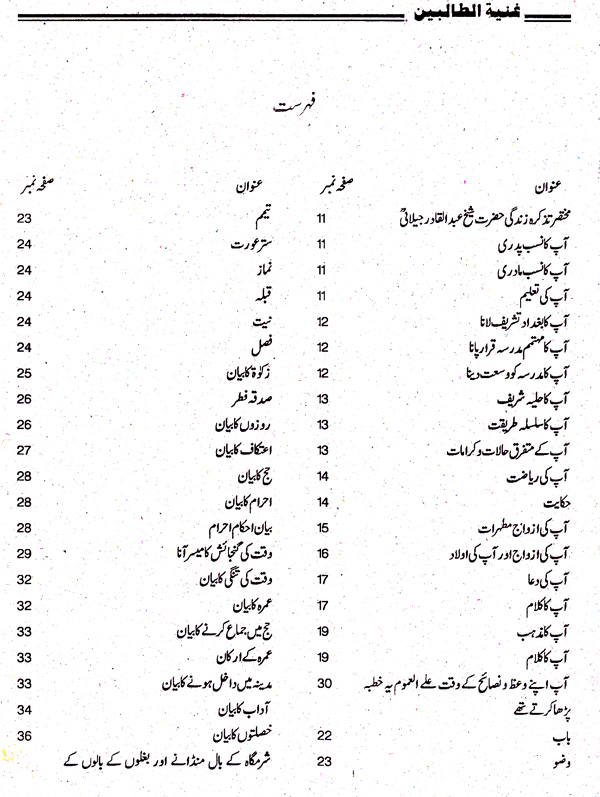 غنیة الطالبین
فہرست
عنوان صفحہ نمبر
مختصر تذکرہ زندگی حضرت شیخ عبدالقادر جیلانیؒ 11
آپ کا نسب پدری 11
آپ کا نسب مادری 11
آپ کی تعلیم 11
آپ کا بغداد تشریف لانا 12
آپ کا مہتمم مدرسہ قرار پانا 12
آپ کا مدرسہ کو وسعت دینا 12
آپ کا حلیہ شریف 13
آپ کا سلسلہ طریقت 13
آپ کے متفرق حالات و کرامات 13
آپ کی ریاضت 14
حکایت 14
آپ کی ازواج مطہرات 15
آپ کی ازواج اور آپ کی اولاد 16
آپ کی دعا 17
آپ کا کلام 17
آپ کا مذہب 19
آپ کا کلام 19
آپ اپنے وعظ و نصائح کے وقت علے العموم یہ خطبہ 30
پڑھا کرتے تھے
باب 22
وضو 23
عنوان صفحہ نمبر
تیمم 23
ستر عورت 24
نماز 24
قبلہ 24
نیت 24
فصل 24
زکوٰۃ کا بیان 25
صدقہ فطر 26
روزوں کا بیان 26
اعتکاف کا بیان 27
حج کا بیان 28
احرام کا بیان 28
بیان احکام احرام 28
وقت کی گنجائش کا میسر آنا 29
وقت کی تنگی کا بیان 32
عمرہ کا بیان 32
حج میں جماع کرنے کا بیان 33
عمرہ کے ارکان 33
مدینہ میں داخل ہونے کا بیان 33
آداب کا بیان 34
خصلتوں کا بیان 36
شرمگاہ کے بال منڈانے اور بغلوں کے بالوں کے